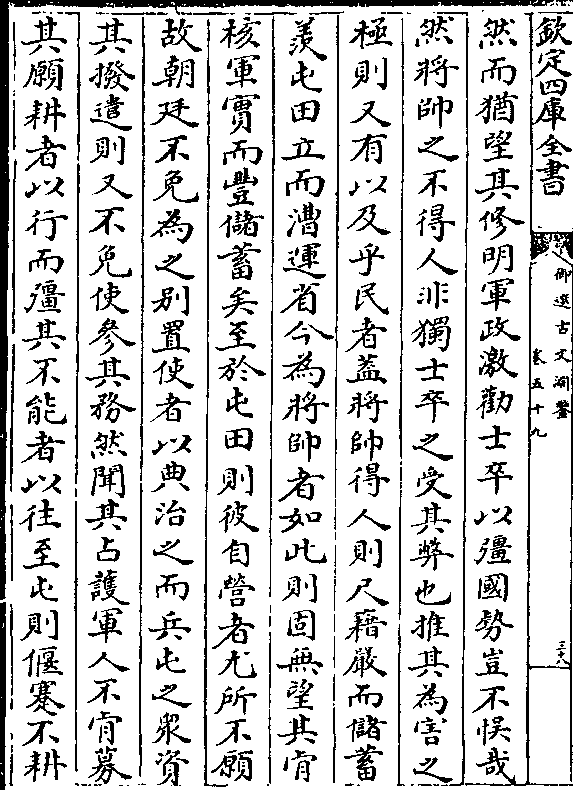 欽定四庫全書
御選古文淵鑒
卷五十九
三十八
然而猶望其修明軍政激勸士卒以彊國勢豈不悞哉
然將帥之不得人非獨士卒之受其弊也推其為害之
極則又有以及乎民者蓋將帥得人則尺籍嚴而儲蓄
羡屯田立而漕運省今為將帥者如此則固無望其肯
核軍實而豐儲蓄矣至於屯田則彼自營者尤所不願
故朝廷不免為之别置使者以典治之而兵屯之衆資
其撥遣則又不免使參其務然聞其占護軍人不肯募
其願耕者以行而彊其不能者以往至屯則偃蹇不耕